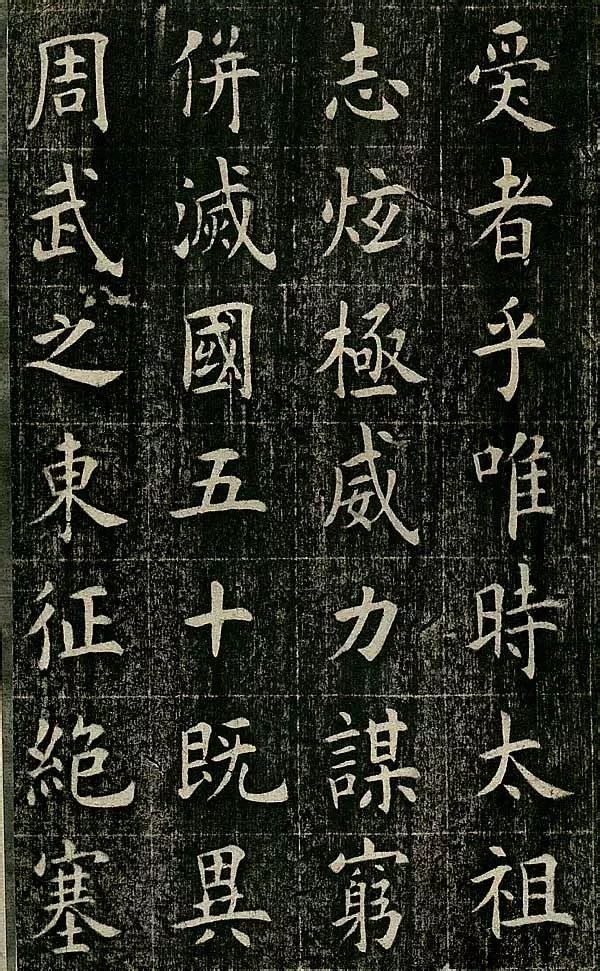 受者乎唯時太祖
志炫極威力謀窮
併滅國五十既異
周武之東征絶塞